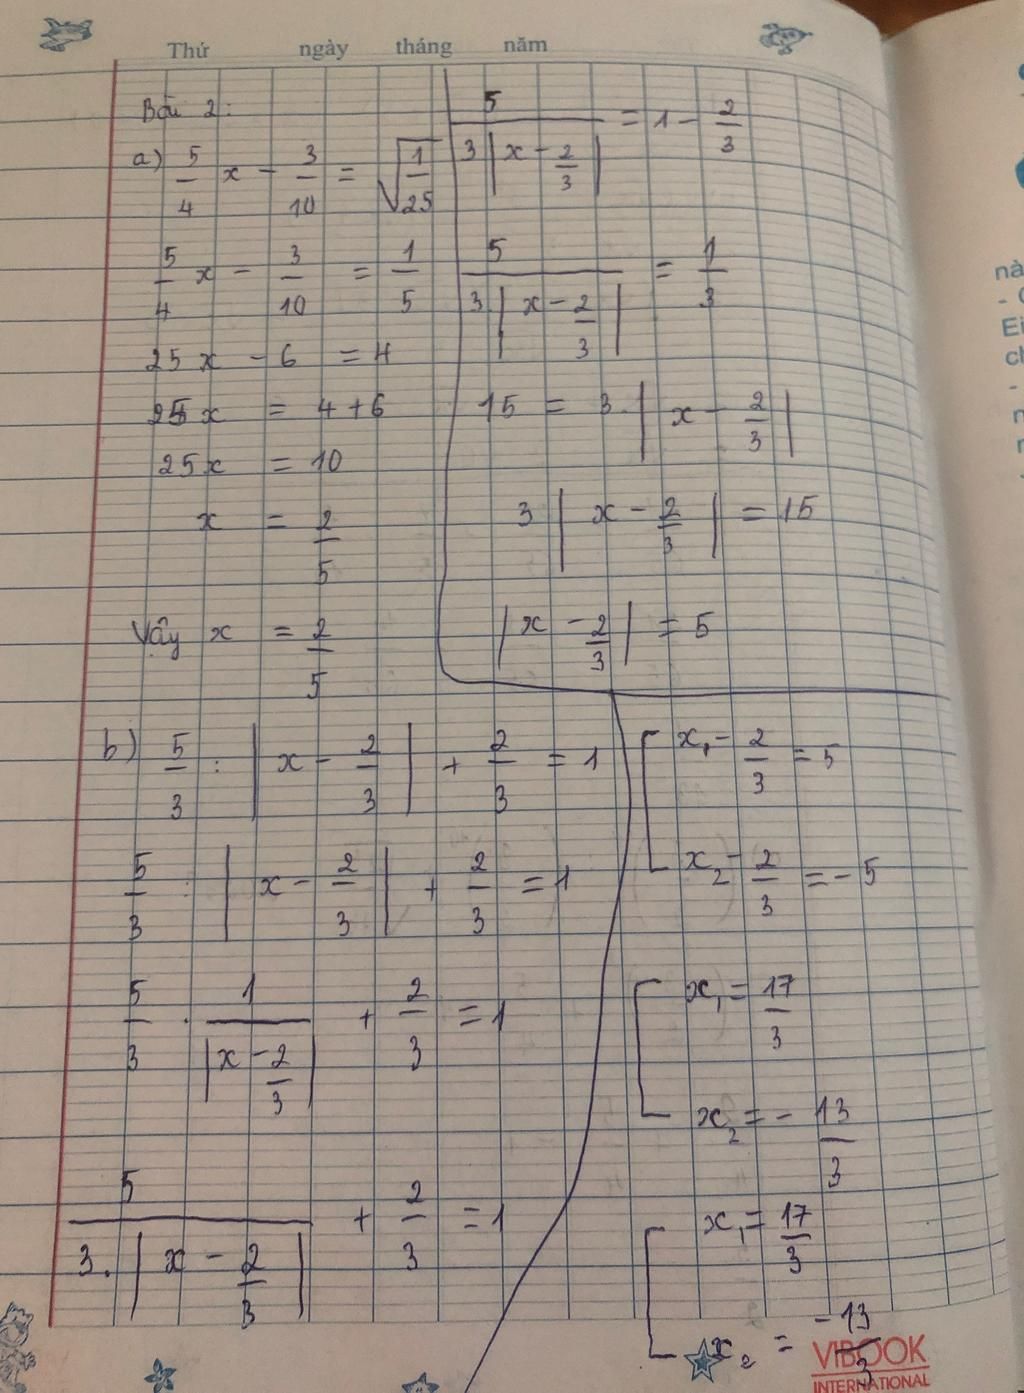 Thứ ngày tháng năm
Bài 2:
a) 5/4 x - 3/10 = √(1/25)
5/4 x - 3/10 = 1/5
25x - 6 = 4
25x = 4 + 6
25x = 10
x = 2/5
Vậy x = 2/5
b) 5/3 : |x - 2/3| + 2/3 = 1
5/3 : |x - 2/3| + 2/3 = 1
5/3 . 1/|x - 2/3| + 2/3 = 1
5/(3.|x - 2/3|) + 2/3 = 1
5/(3|x - 2/3|) = 1 - 2/3
5/(3.|x - 2/3|) = 1/3
15 = 3.|x - 2/3|
3|x - 2/3| = 15
|x - 2/3| = 5
[x₁ - 2/3 = 5
x₂ - 2/3 = -5
[x₁ = 17/3
x₂ = -13/3
[x₁ = 17/3
x₂ = -13/3
VIBOOK
INTERNATIONAL
nà
- 
Ei
ch
-